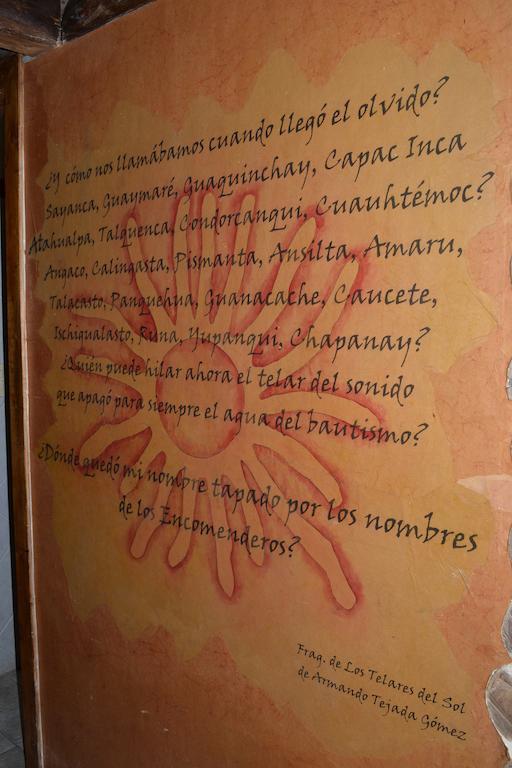 ¿y cómo nos llamábamos cuando llegó el olvido?
Sayanca, Guaymaré, Guaquinchay, Capac Inca
Atahualpa, Talquenca, Condorcanqui, Cuauhtémoc?
Angaco, Calingasta, Pismanta, Ansilta, Amaru,
Talacasto, Panquehua, Guanacache, Caucete,
Ischigualasto, Runa, Yupanqui, Chapanay?
¿Quién puede hilar ahora el telar del sonido
que apagó para siempre el agua del bautismo?
¿Dónde quedó mi nombre tapado por los nombres
de los Encomenderos?
Frag. de Los Telares del Sol
de Armando Tejada Gómez